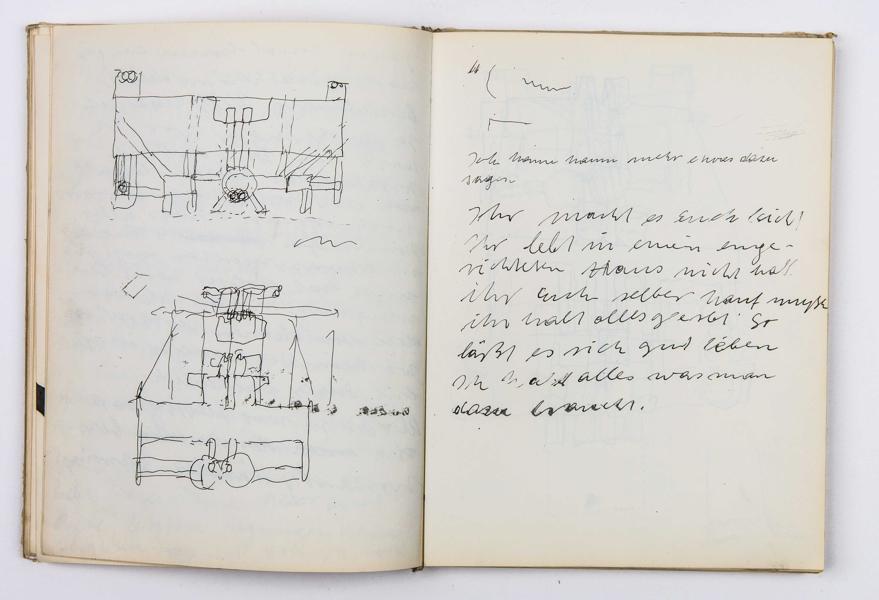 Ich kann kaum mehr etwas dazu
sagen
Ihr macht es Euch leicht
Ihr lebt in einem einge-
richteten Haus nicht
ihr Euch selber
ihr habt alles geerbt. So
läßt es sich gut leben
Ihr habt alles was man
dazu braucht.